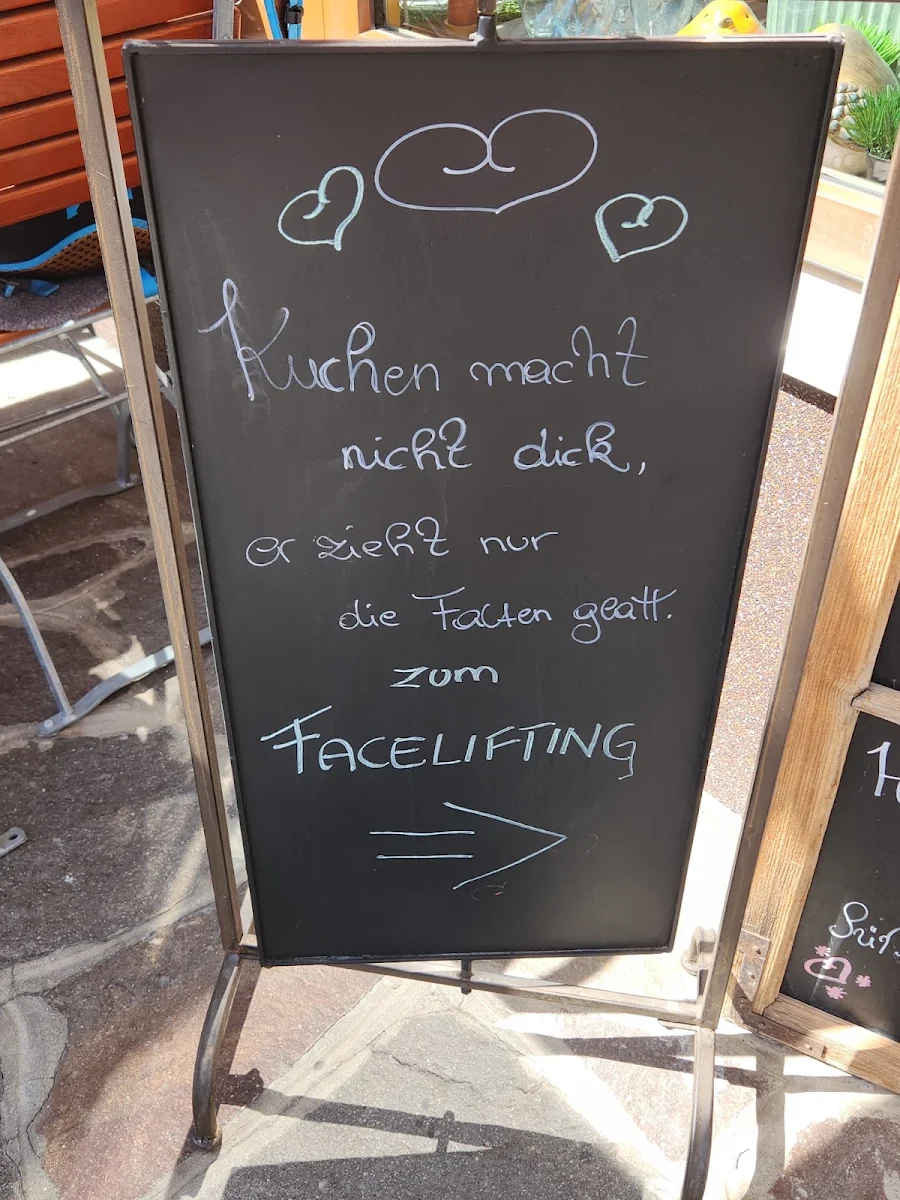 Kuchen macht
nicht dick,
er zieht nur
die Falten glatt.
zum
FACELIFTING